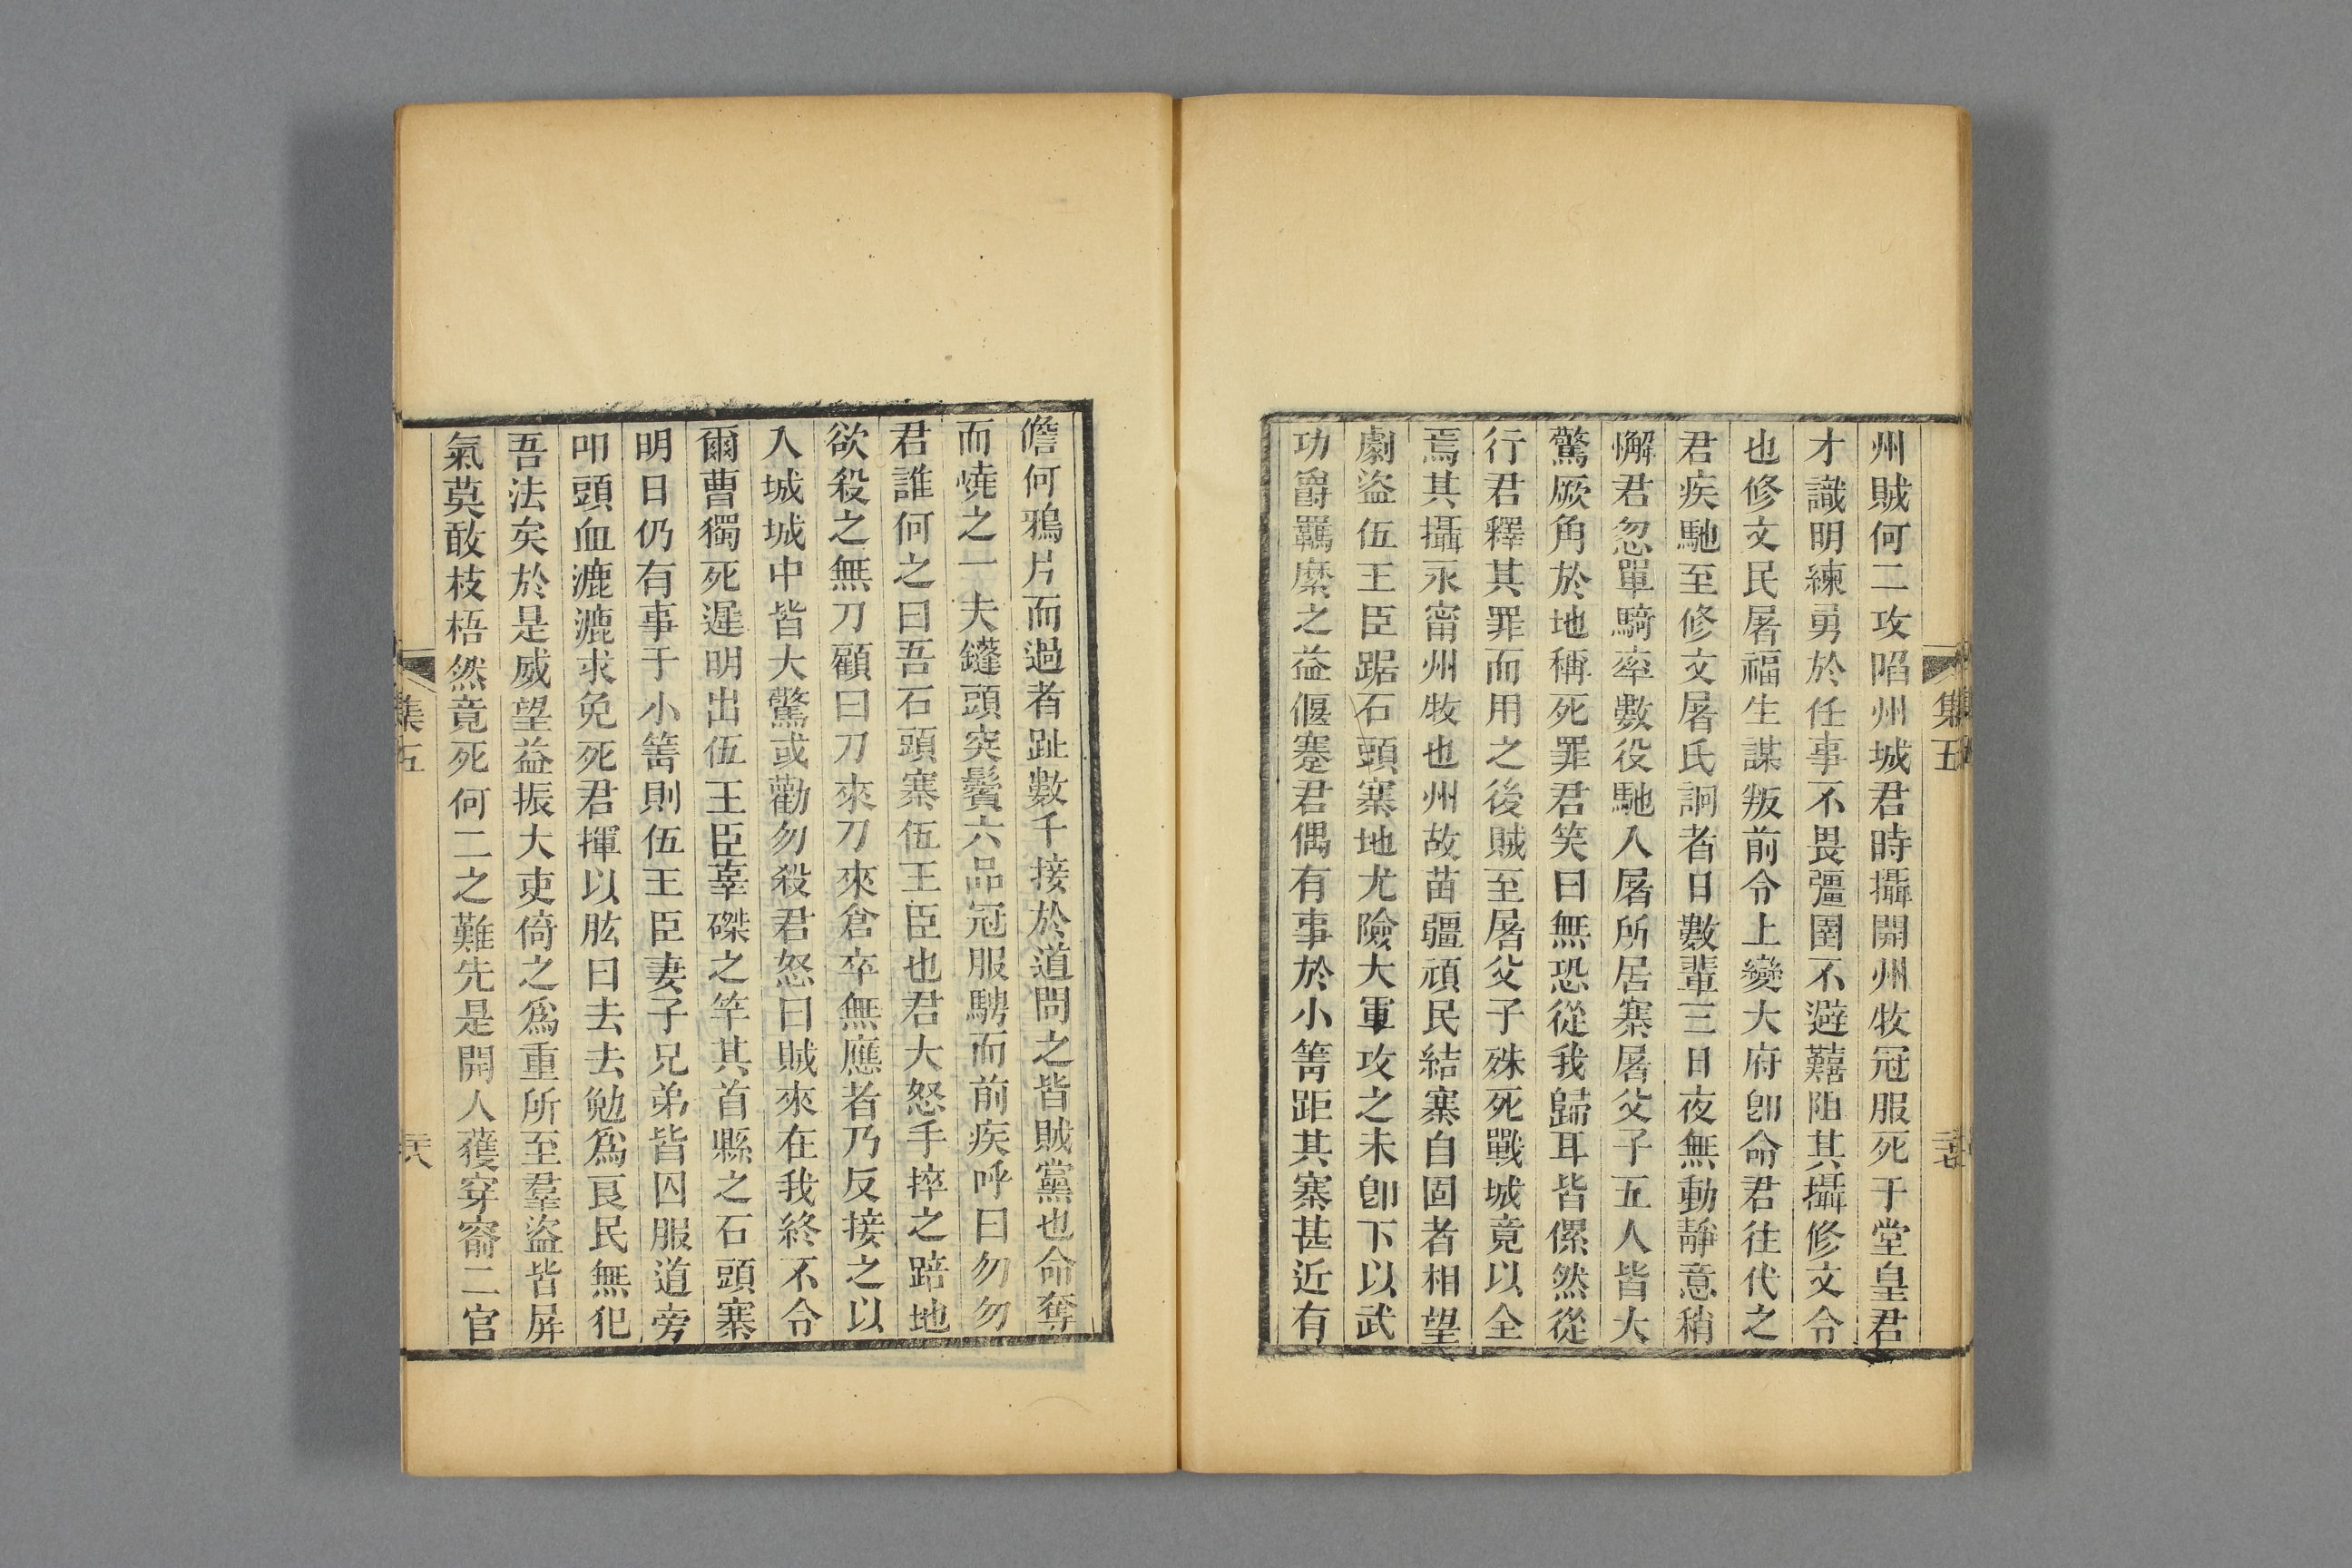 州賊何二攻陷州城君時攝開州牧冠服死于堂皇君
才識明練勇於任事不畏彊圉不避囏阻其攝修文令
也修文民屠福生謀叛前令上變大府卽命君往代之
君疾馳至修文屠氏詗者日數輩三日夜無動靜意稍
懈君忽單騎率數役馳入屠所居寨屠父子五人皆大
驚厥角於地稱死罪君笑曰無恐從我歸耳皆傫然從
行君釋其罪而用之後賊至屠父子殊死戰城竟以全
焉其攝永甯州牧也州故苗疆頑民結寨自固者相望
劇盜伍王臣踞石頭寨地尤險大軍攻之未卽下以武
功爵羈縻之益偃蹇君偶有事於小箐距其寨甚近有
集五
儋何鴉片而過者趾數千接於道問之皆賊黨也命奪
而燒之一夫鬔頭突鬢六品冠服騁而前疾呼曰勿勿
君誰何之曰吾石頭寨伍王臣也君大怒手捽之踣地
欲殺之無刀顧曰刀來刀來倉卒無應者乃反接之以
入城城中皆大驚或勸勿殺君怒曰賊來在我終不令
爾曹獨死遲明出伍王臣辜磔之竿其首縣之石頭寨
明日仍有事于小箐則伍王臣妻子兄弟皆囚服道旁
叩頭血漉漉求免死君揮以肱曰去去勉爲良民無犯
吾法矣於是威望益振大吏倚之爲重所至羣盜皆屏
氣莫敢枝梧然竟死何二之難先是開人獲穿窬二官
集五